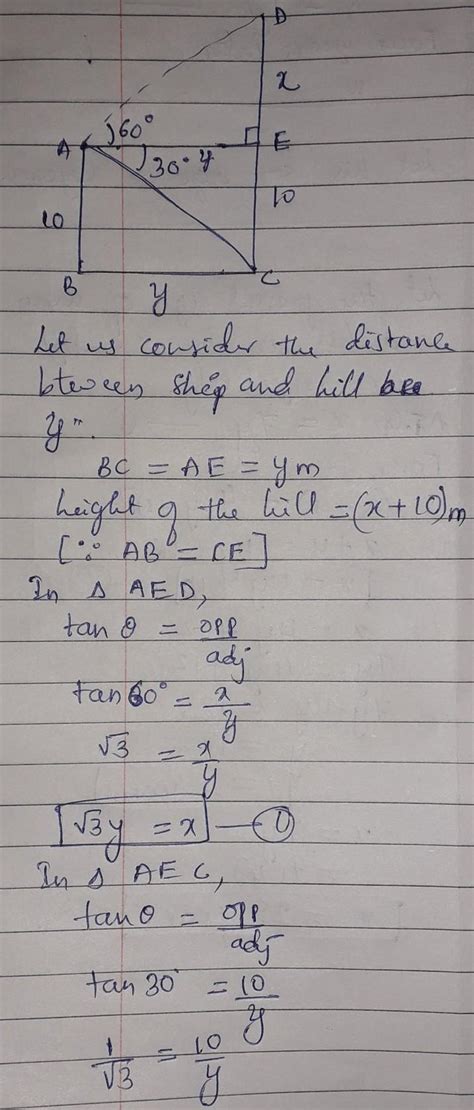 D
x
60°
A
E
30° y
10
10
B
C
y
Let us consider the distance
btween ship and hill be
y m.
BC = AE = y m
height of the hill = (x+10)m
[∵ AB = CE]
In Δ AED,
tan θ = opp/adj
tan 60° = x/y
√3 = x/y
√3y = x —①
In Δ AEC,
tan θ = opp/adj
tan 30° = 10/y
1/√3 = 10/y